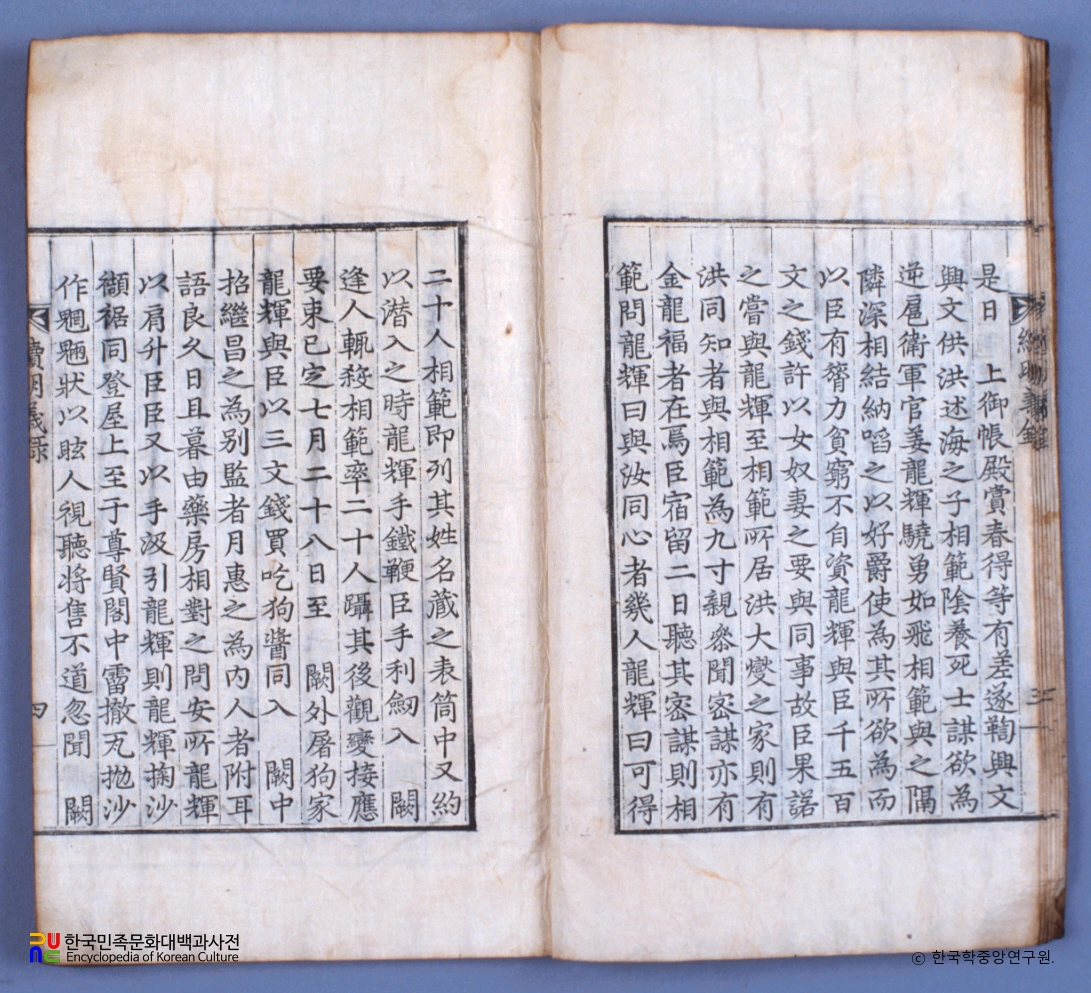 是日 上御帳殿賞春得等有差遂鞫興文
興文供洪述海之子相範陰養死士謀欲為
逆扈衛軍官姜龍輝驍勇如飛相範與之隔
隣深相結納啗之以好爵使為其所欲為而
以臣有膂力貧窮不自資龍輝與臣千五百
文之錢許以女奴妻之要與同事故臣果諾
之嘗與龍輝至相範所居洪大燮之家則有
洪同知者與相範為九寸親叅聞密謀亦有
金龍福者在焉臣宿留二日聽其密謀則相
範問龍輝曰與汝同心者幾人龍輝曰可得
二十人相範即列其姓名藏之表筒中又約
以潜入之時龍輝手鐵鞭臣手利劒入 闕
逢人輒殺相範率二十人躡其後觀變接應
要束已定七月二十八日至 闕外屠狗家
龍輝與臣以三文錢買吃狗醬同入 闕中
招繼昌之為別監者月惠之為内人者附耳
語良久日且暮由藥房相對之間安所龍輝
以肩升臣臣又以手汲引龍輝則龍輝掬沙
襭裾同登屋上至于尊賢閣中霤撤瓦抛沙
作魍魎狀以眩人視聽将售不道忽聞 闕
續明義録
四
한국민족문화대백과사전
Encyclopedia of Korean Culture
© 한국학중앙연구원.